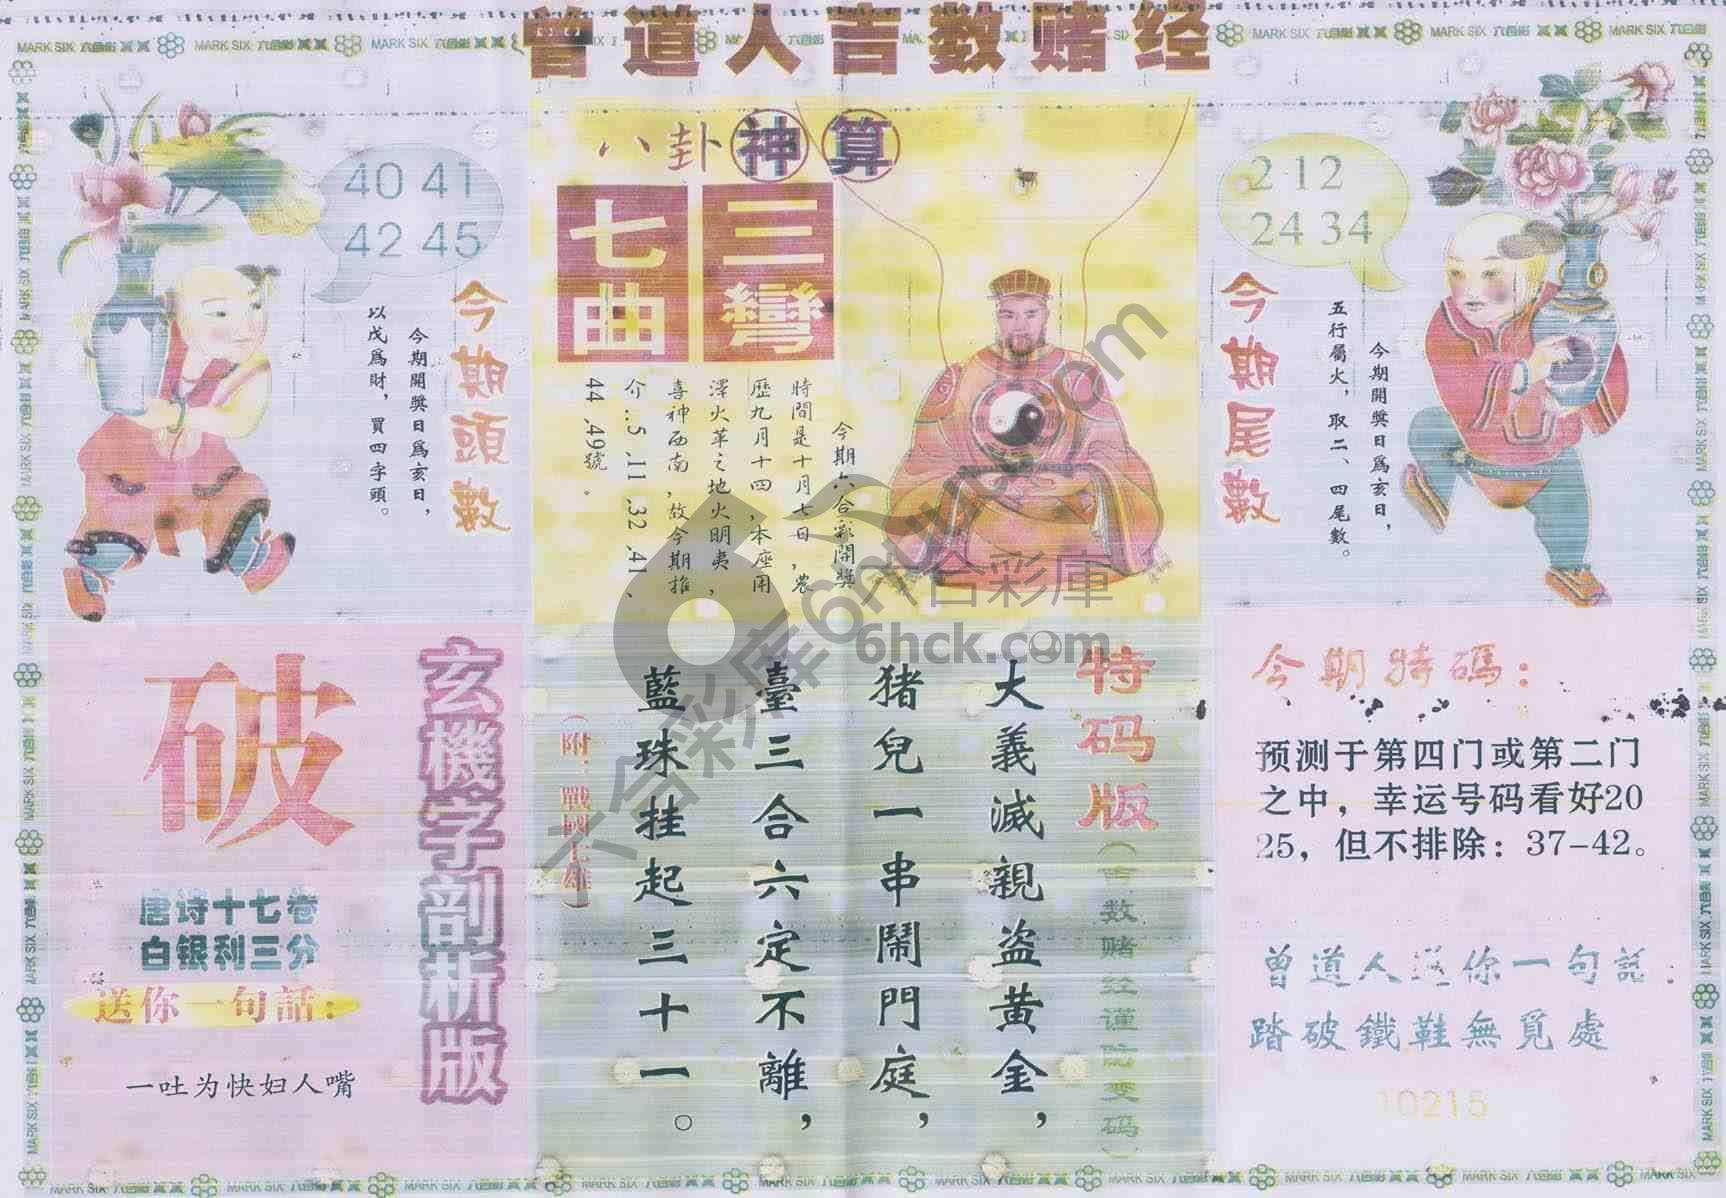 曾道人吉数赌经
MARK SIX 六合彩
八卦神算
七曲
三彎
今期六合彩開獎
時間是十月七日,農
歷九月十四,本座用
澤火革之地火明夷,
喜神西南,故今期推
介...5.11.32.41、
44.49號.
40 41
42 45
今期頭數
今期開獎日為亥日,
以戊為財,買四字頭。
2 12
24 34
今期尾數
今期開獎日為亥日,
五行屬火,取二、四尾數。
玄機字剖析版
破
唐诗十七卷
白银利三分
送你一句話:
一吐为快妇人嘴
特码版
(吉数赌经谨防变码)
大義滅親盗黄金,
猪兒一串鬧門庭,
臺三合六定不離,
藍珠挂起三十一。
(附:戰國七雄)
今期特碼:
预测于第四门或第二门
之中,幸运号码看好20
25,但不排除:37-42。
曾道人送你一句話:
踏破鐵鞋無覓處
10215
六合彩庫
6hck.com
六合彩库6hck.com